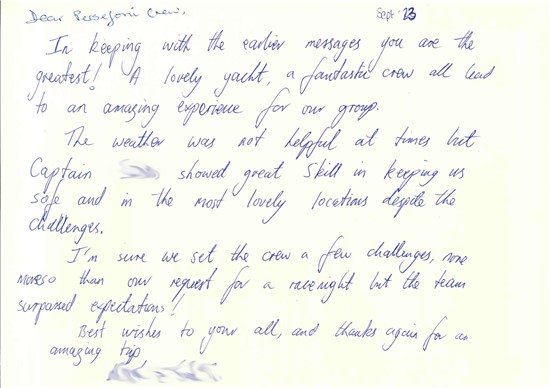 Dear Persefoni Crew, Sept '23
In keeping with the earlier messages you are the
greatest! A lovely yacht, a fantastic crew all lead
to an amazing experience for our group.
The weather was not helpful at times but
Captain showed great skill in keeping us
safe and in the most lovely locations despite the
challenges.
I'm sure we set the crew a few challenges, none
moreso than our request for a racenight but the team
surpassed expectations!
Best wishes to your all, and thanks again for an
amazing trip,